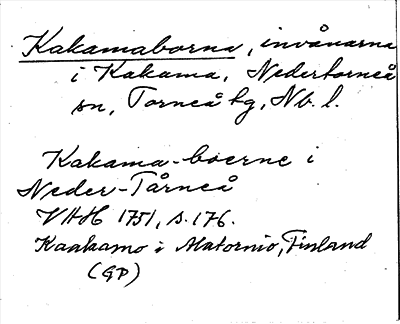 Kakamaborna, invånarna
i Kakama, Nedertorneå
sn, Torneå tg, Nb. l.
Kakama-boerne i
Neder-Tårneå
VHH 1751, s. 176.
Kaakamo i Alatornio, Finland
(GP)